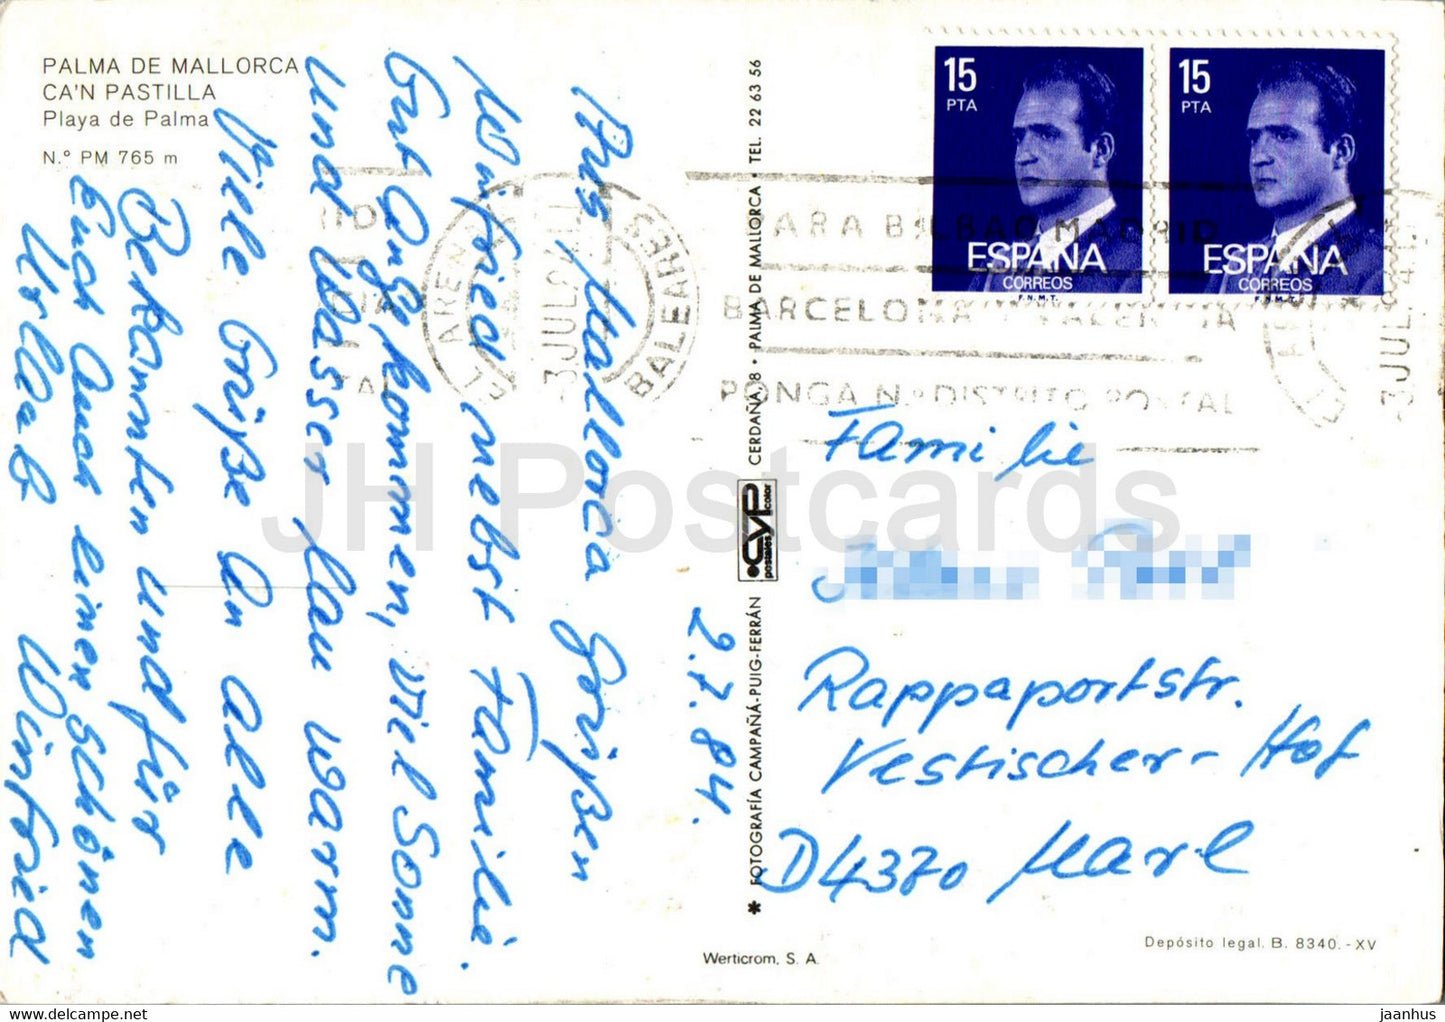 PALMA DE MALLORCA
CA'N PASTILLA
Playa de Palma
N.º PM 765 m
2.7.84.
Aus Mallorca Grüßen
Winfried nebst Familie.
Gut angekommen, viel Sonne
und Wasser lau warm.
Viele Grüße an alle
Bekannten und für
Euch auch einen schönen
Urlaub Winfried
✱ FOTOGRAFÍA CAMPAÑÁ-PUIG-FERRÁN
CYP
postales color
CERDAÑA, 8 • PALMA DE MALLORCA • TEL. 22 63 56
15
PTA
ESPAÑA
CORREOS
F.N.M.T.
15
PTA
ESPAÑA
CORREOS
F.N.M.T.
EL ARENAL
3 JUL 84
BALEARES
PARA BILBAO MADRID
BARCELONA VALENCIA
PONGA Nº DISTRITO POSTAL
3 JUL 84
Familie
Rappaportstr.
Vestischer-Hof
D4370 Marl
Werticrom, S. A.
Depósito legal. B. 8340.-XV
JH Postcards
hippostcard.com/store/jhpostcards
jaanhus